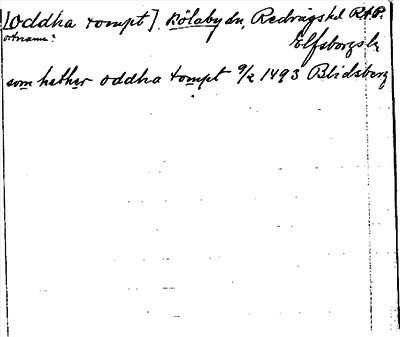 [Oddha tompt]. Kölaby sn, Redvägs hd RAP.
ortnamn?
Elfsborgs l.
som hether oddha tompt 9/2 1493 Blidsberg